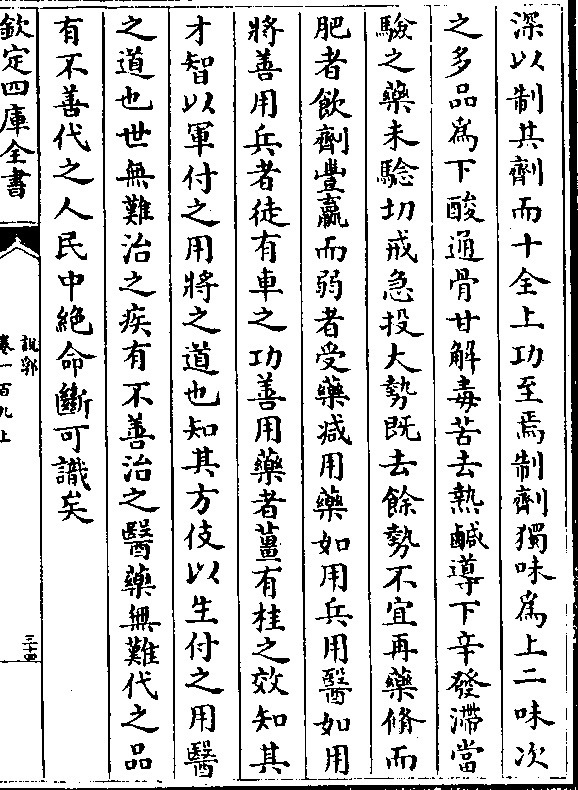 深以制其劑而十全上功至焉制劑獨味爲上二味次
之多品爲下酸通骨甘解毒苦去熱鹹導下辛發滯當
驗之藥未驗切戒急投大勢既去餘勢不宜再藥脩而
肥者飲劑豐羸而弱者受藥减用藥如用兵用醫如用
將善用兵者徒有車之功善用藥者薑有桂之效知其
才智以軍付之用將之道也知其方伎以生付之用醫
之道也世無難治之疾有不善治之醫藥無難代之品
有不善代之人民中絶命斷可識矣
欽定四庫全書
説郛
卷一百九上
三十四